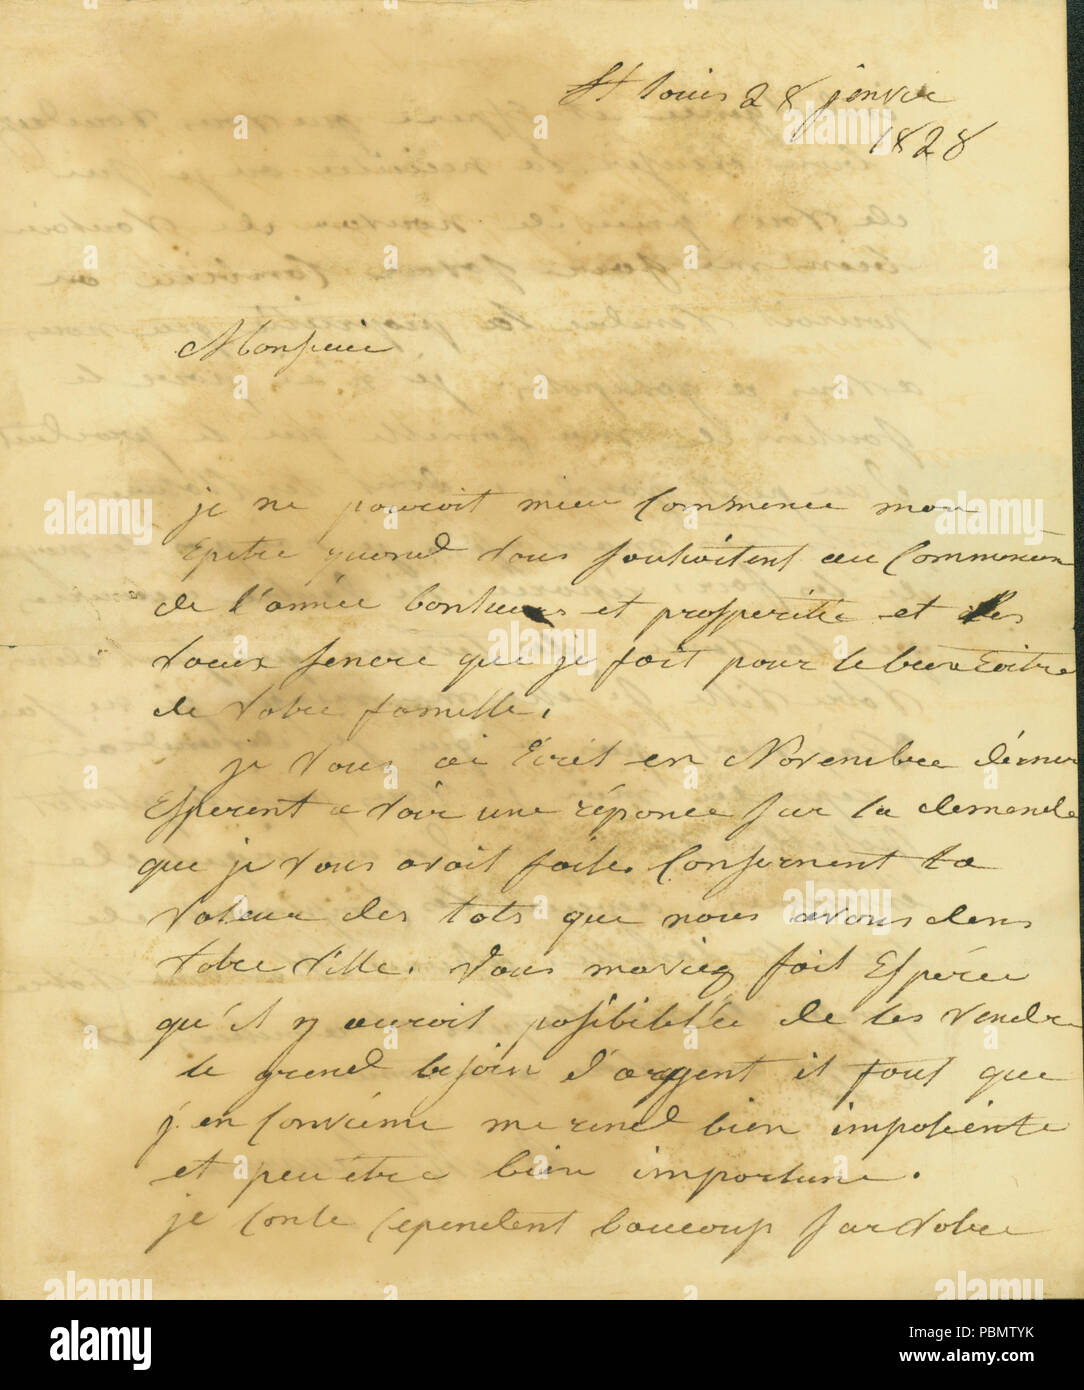 St Louis 28 janvie
1828
Monsieur
je ne pouroit mieu Commence mon
Epitre quand vous souhaitent au Commencen
de l'année bonheure et prosperitée et des
vœux sencre que je fait pour le bien Eitre
de votre famille,
je vous ai Ecrit en Novembre dernier
Esperent avoir une réponce sur la demende
que je vous avait faite. Consernent la
valeur des lots que nous avons dens
votre ville. vous maviez fait Espérée
qu'il y auroit posibilitée de les vendre
le grend besoin d'argent il faut que
j'en Conviene me rend bien impasiente
et peu etre bien importune.
je Conte Cependent baucoup sur votre
alamy stock photo
PBMTYK
www.alamy.com